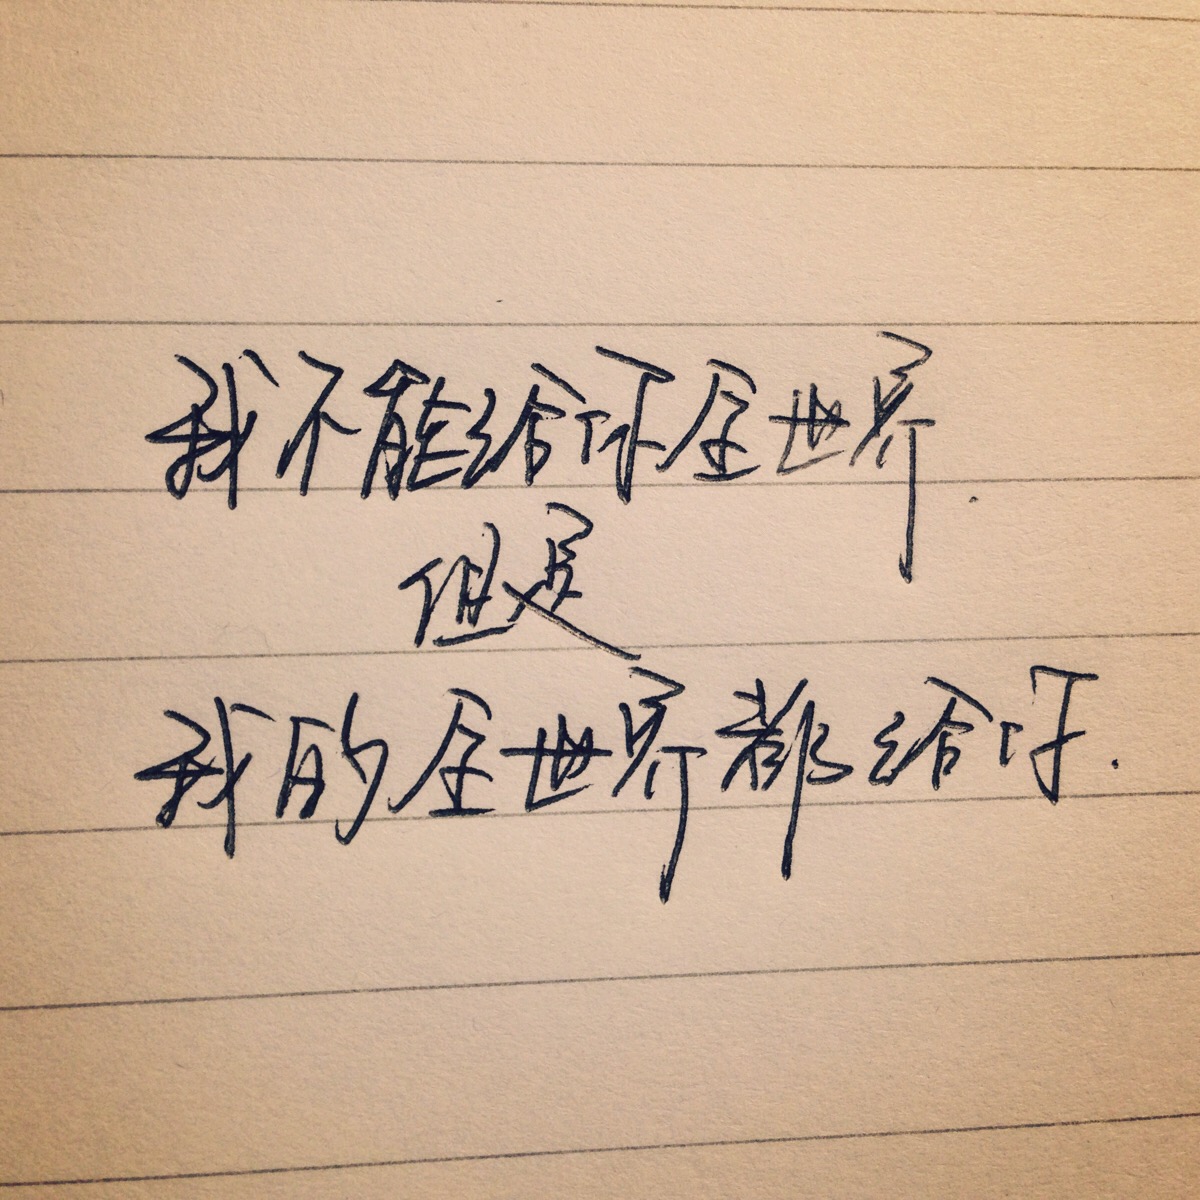 我不能给你全世界.
但是
我的全世界都给你.